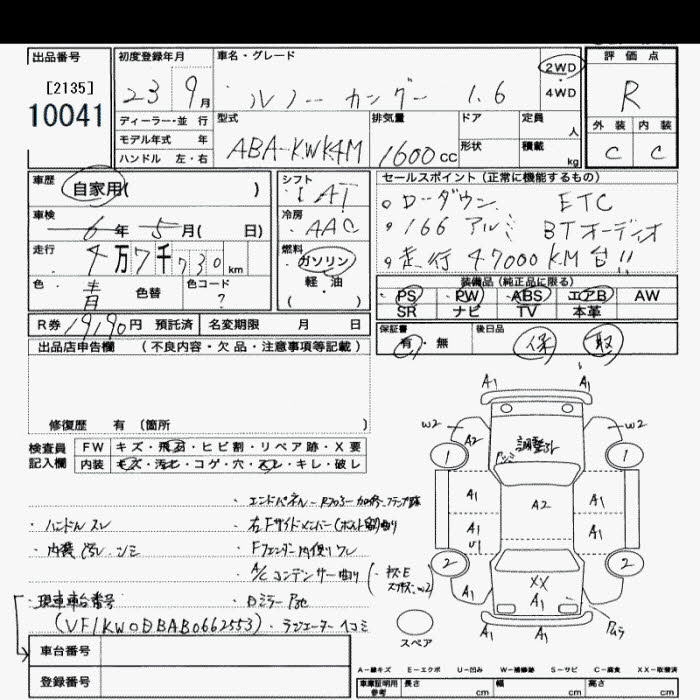 出品番号
[2135]
10041
初度登録年月
23 9月
車名・グレード
ルノー カングー 1.6
2WD
・
4WD
評価点
R
外装 内装
C C
ディーラー・並行
モデル年式 年
ハンドル 左・右
型式
ABA-KWK4M
排気量
1600cc
ドア
形状
定員
人
積載
kg
車歴
自家用( )
車検
6年5月( 日)
走行
4万7千730km
色
青 色替
色コード
?
シフト
I AT
冷房
AAC
燃料
ガソリン
軽油
( )
セールスポイント (正常に機能するもの)
。ローダウン ETC
。166 アルミ BTオーディオ
。走行47000KM台!!
装備品 (純正品に限る)
PS PW ABS エアB AW
SR ナビ TV 本革
R券 19190円 預託済 名変期限 月 日
保証書
有・無
後日品
保 取
出品店申告欄 (不良内容・欠品・注意事項等記載)
修復歴 有 (箇所 )
検査員
記入欄
FW キズ・飛石・ヒビ割・リペア跡・X要
内装 キズ・汚れ・コゲ・穴・スレ・キレ・破レ
・ハンドルスレ
・内装汚レ シミ
・エンドパネル
・右Fサイドメンバー
・Fフェンダー内
・A/Cコンデンサー曲り
・現車車台番号
(VF1KW0BBAB0662553)
・ラジエーターヘコミ
車台番号
登録番号
A1 A1
W2 A2 W2
1 調整 1
A1 A2 A1
A1 A1
U1
2 2
A1 XX A1
A1
A1
スペア
A-線キズ E-エクボ U-凹み W-補修跡 S-サビ C-腐食 XX-取替済
車庫証明用
参考
長さ cm 幅 cm 高さ cm